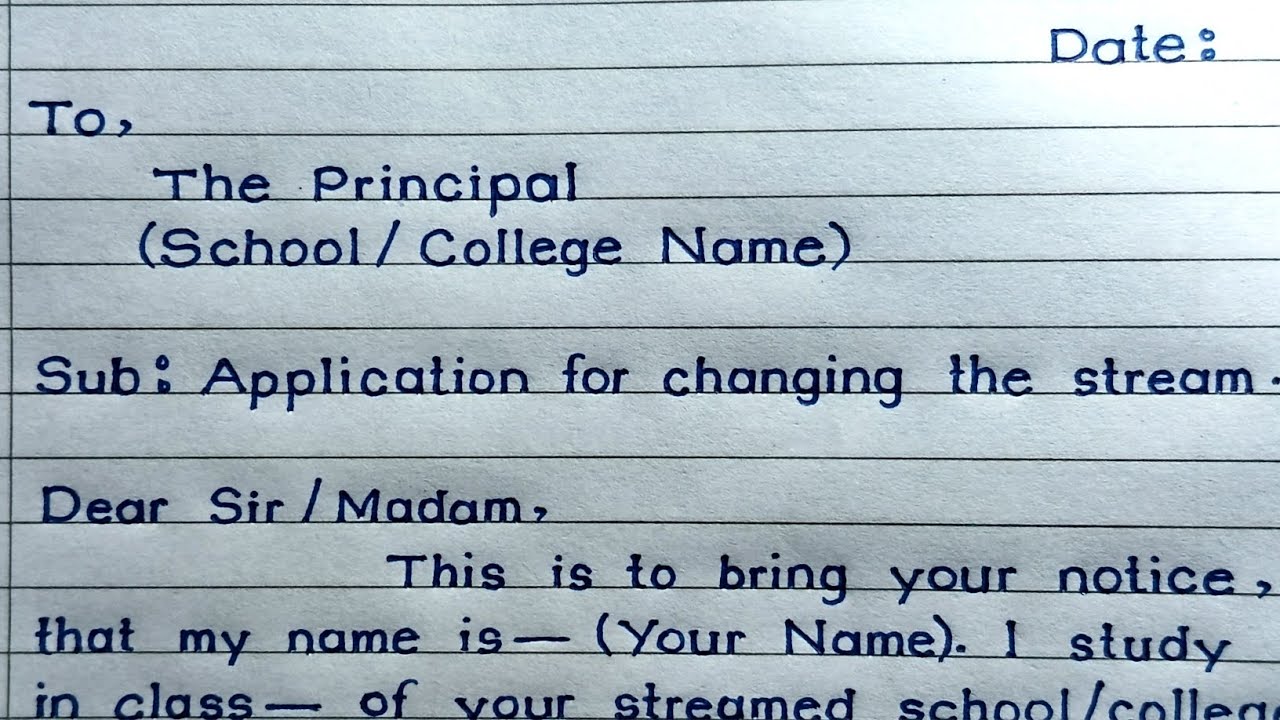 Date:
To,
The Principal
(School/College Name)
Sub: Application for changing the stream.
Dear Sir/Madam,
This is to bring your notice,
that my name is— (Your Name). I study
in class— of your streamed school/college